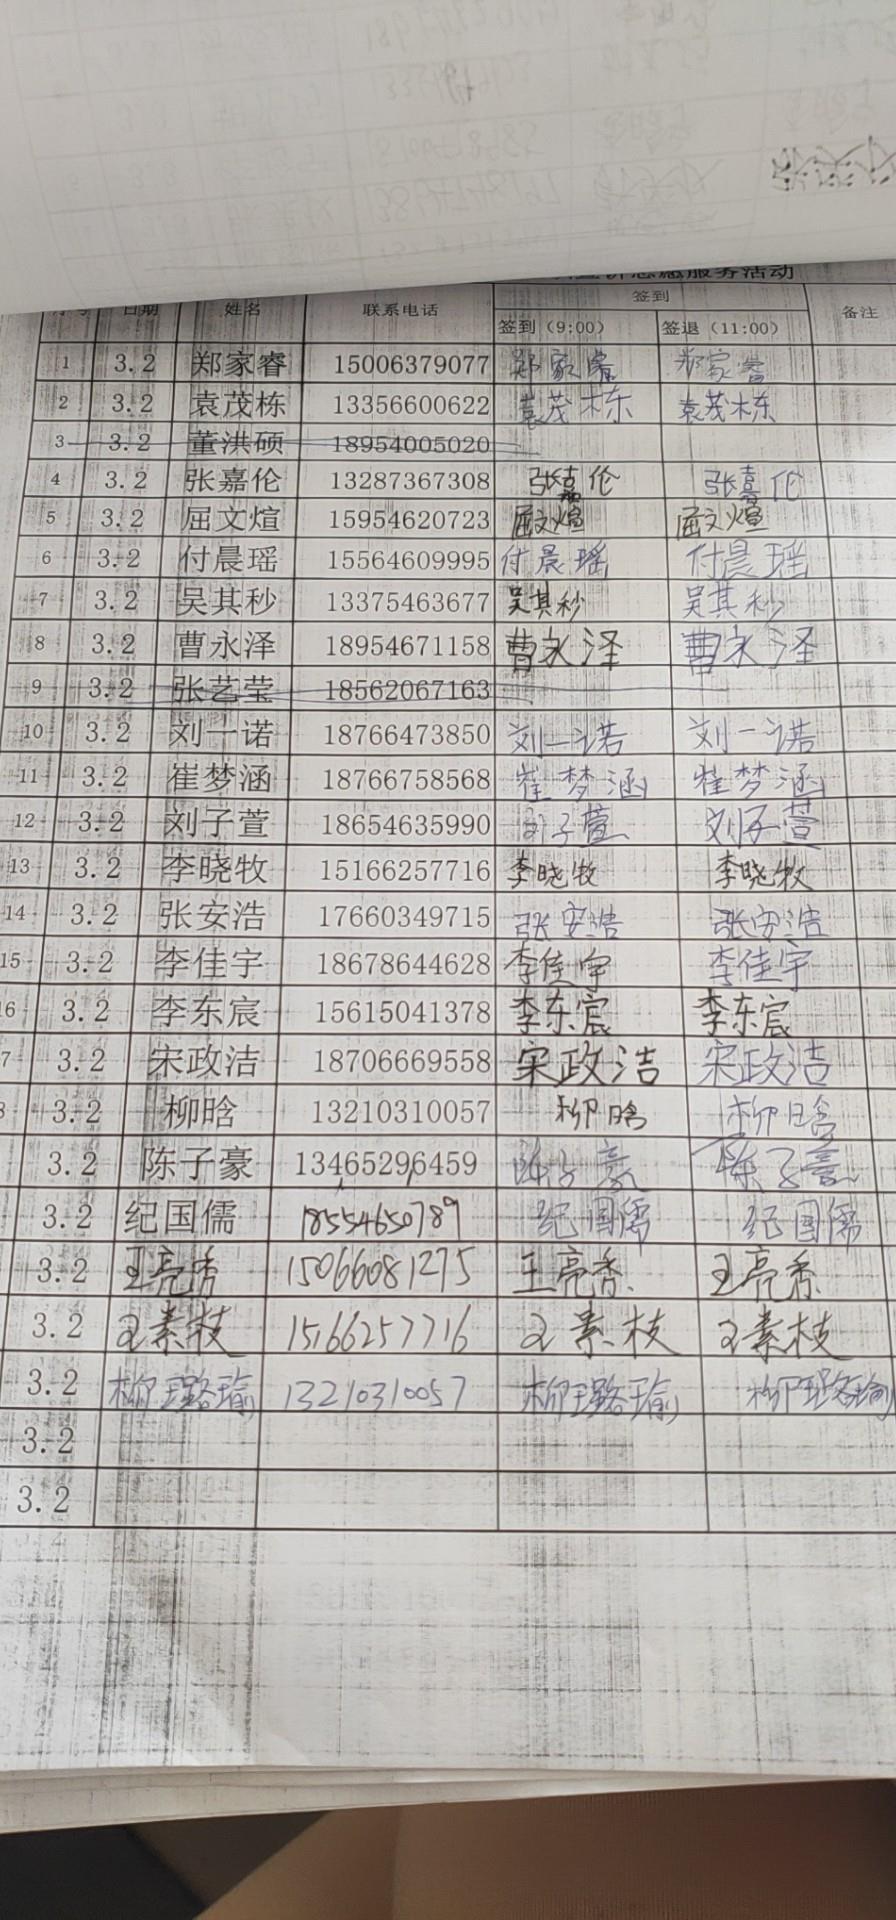 志愿服务活动
日期 姓名 联系电话 签到 备注
签到（9:00） 签退（11:00）
1 3.2 郑家睿 15006379077 郑家睿 郑家睿
2 3.2 袁茂栋 13356600622 袁茂栋 袁茂栋
3 3.2 董洪硕 18954005020
4 3.2 张嘉伦 13287367308 张嘉伦 张嘉伦
5 3.2 屈文煊 15954620723 屈文煊 屈文煊
6 3.2 付晨瑶 15564609995 付晨瑶 付晨瑶
7 3.2 吴其秒 13375463677 吴其秒 吴其秒
8 3.2 曹永泽 18954671158 曹永泽 曹永泽
9 3.2 张艺莹 18562067163
10 3.2 刘一诺 18766473850 刘一诺 刘一诺
11 3.2 崔梦涵 18766758568 崔梦涵 崔梦涵
12 3.2 刘子萱 18654635990 刘子萱 刘子萱
13 3.2 李晓牧 15166257716 李晓牧 李晓牧
14 3.2 张安浩 17660349715 张安浩 张安浩
15 3.2 李佳宇 18678644628 李佳宇 李佳宇
16 3.2 李东宸 15615041378 李东宸 李东宸
7 3.2 宋政洁 18706669558 宋政洁 宋政洁
8 3.2 柳晗 13210310057 柳晗 柳晗
3.2 陈子豪 13465296459 陈子豪 陈子豪
3.2 纪国儒 18554650789 纪国儒 纪国儒
3.2 王亮香 15066081275 王亮香 王亮香
3.2 王素枝 15166257716 王素枝 王素枝
3.2 柳璐瑜 13210310057 柳璐瑜 柳璐瑜
3.2
3.2